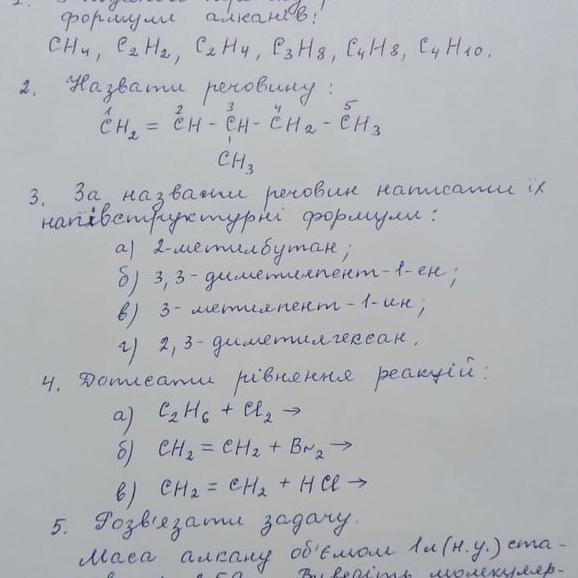 формули алканів:
CH4, C2H2, C2H4, C3H8, C4H8, C4H10.
2. Назвати речовину:
1 2 3 4 5
CH2 = CH - CH - CH2 - CH3
CH3
3. За назвами речовин написати їх
напівструктурні формули:
а) 2-метилбутан;
б) 3,3-диметилпент-1-ен;
в) 3-метилпент-1-ин;
г) 2,3-диметилгексан.
4. Дописати рівняння реакцій:
а) C2H6 + Cl2 →
б) CH2 = CH2 + Br2 →
в) CH2 = CH2 + HCl →
5. Розв'язати задачу.
Маса алкану об'ємом 1л (н.у.) ста-